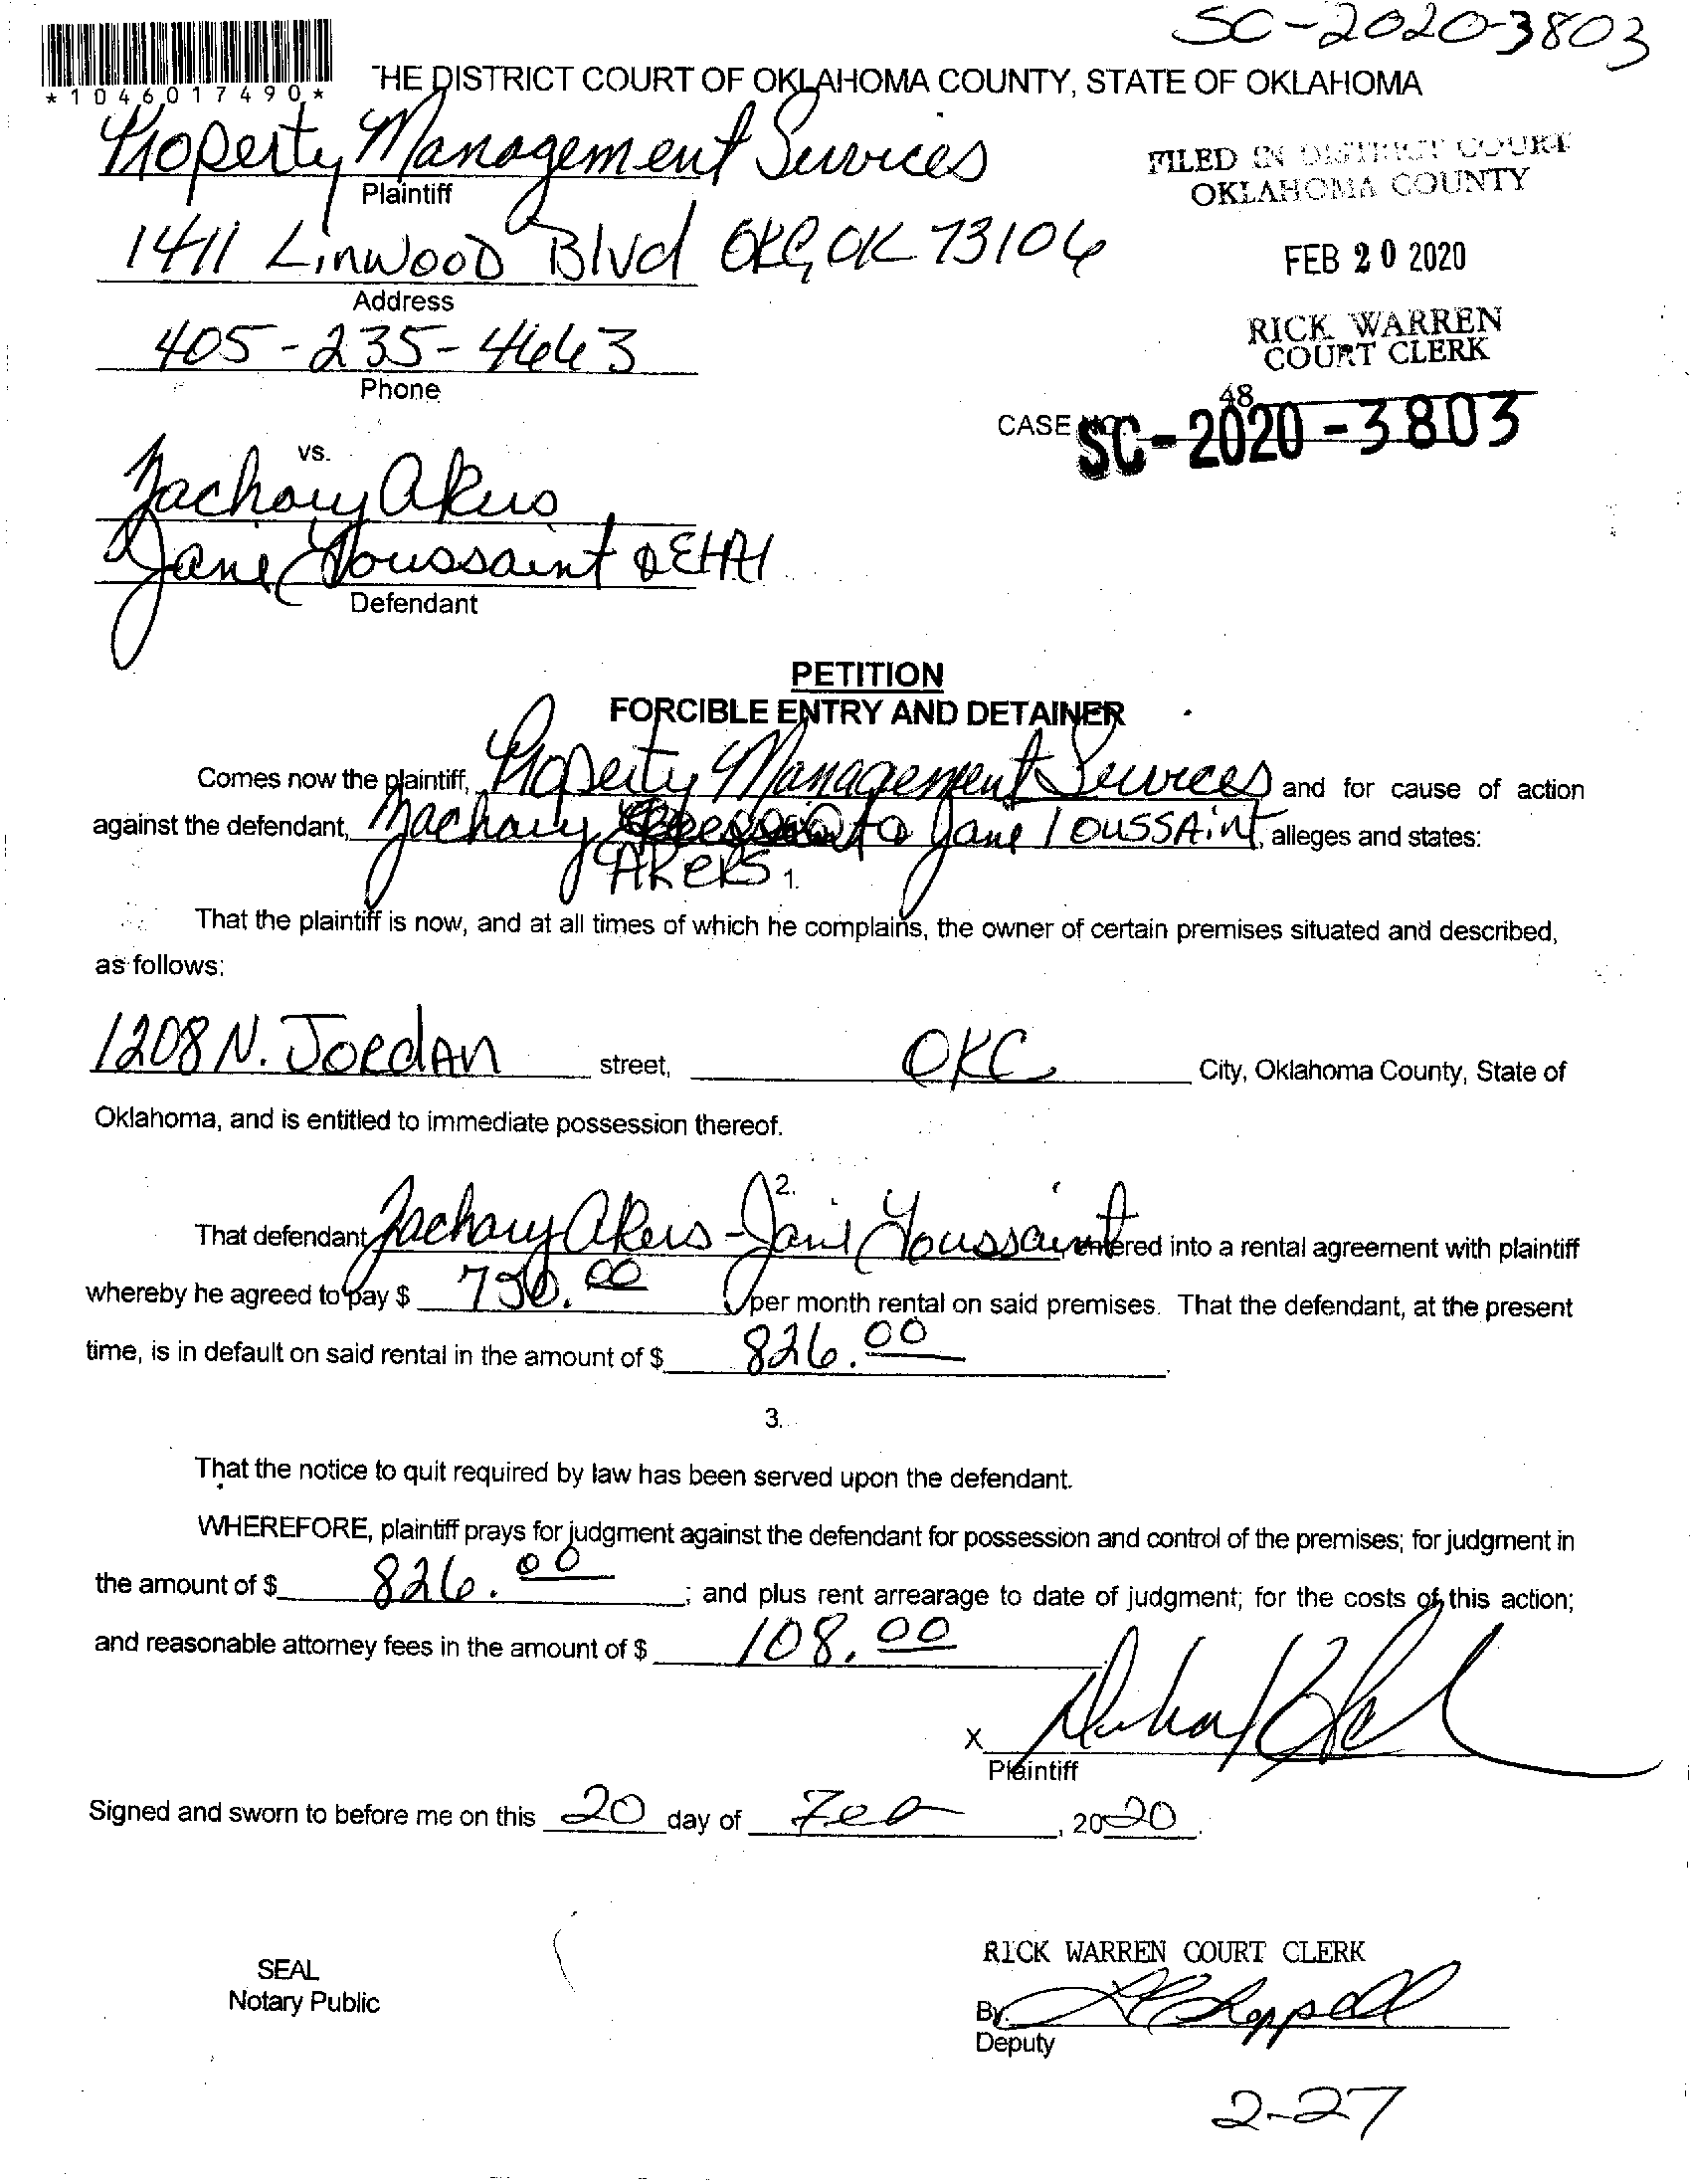 SC-2020-3803
*1046017490*
THE DISTRICT COURT OF OKLAHOMA COUNTY, STATE OF OKLAHOMA
Property Management Services
Plaintiff
FILED IN DISTRICT COURT
OKLAHOMA COUNTY
1411 Linwood Blvd OKC, OK 73106
FEB 20 2020
Address
RICK WARREN
COURT CLERK
405-235-4663
Phone
48
CASE NO. SC-2020-3803
vs.
Zachary Akers
Jane Toussaint
Defendant
PETITION
FORCIBLE ENTRY AND DETAINER
Comes now the plaintiff, Property Management Services and for cause of action
against the defendant, Zachary Jane Toussaint, alleges and states:
Akers
1.
That the plaintiff is now, and at all times of which he complains, the owner of certain premises situated and described,
as follows:
1208 N. Jordan street, OKC City, Oklahoma County, State of
Oklahoma, and is entitled to immediate possession thereof.
2.
That defendant Zachary Akers-Jane Toussaint entered into a rental agreement with plaintiff
whereby he agreed to pay $ .00 per month rental on said premises. That the defendant, at the present
time, is in default on said rental in the amount of $ 826.00.
3.
That the notice to quit required by law has been served upon the defendant.
WHEREFORE, plaintiff prays for judgment against the defendant for possession and control of the premises; for judgment in
the amount of $ 826.00; and plus rent arrearage to date of judgment; for the costs of this action;
and reasonable attorney fees in the amount of $ 108.00
X
Plaintiff
Signed and sworn to before me on this 20 day of Feb, 2020.
RICK WARREN COURT CLERK
SEAL
Notary Public
By:
Deputy
2-27